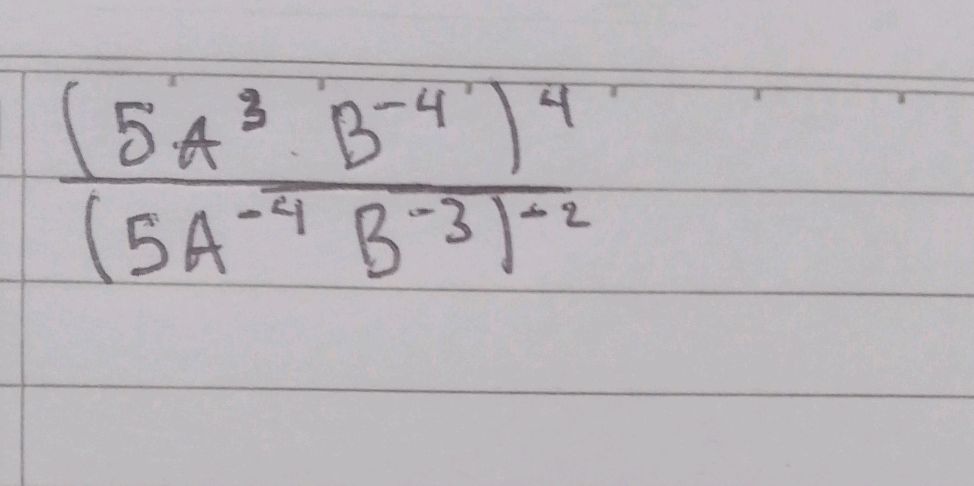 (5A³ · B⁻⁴)⁴
(5A⁻⁴ B⁻³)⁻²